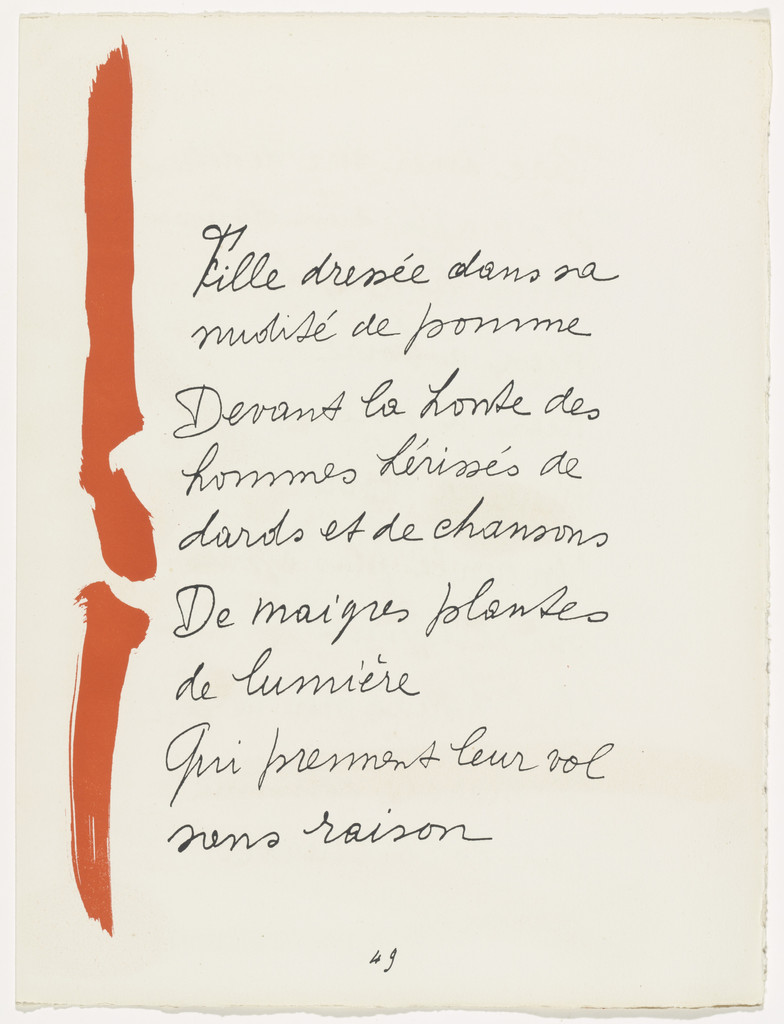 Fille dressée dans sa
nudité de pomme
Devant la honte des
hommes hérissés de
dards et de chansons
De maigres plantes
de lumière
Qui prennent leur vol
sans raison
49